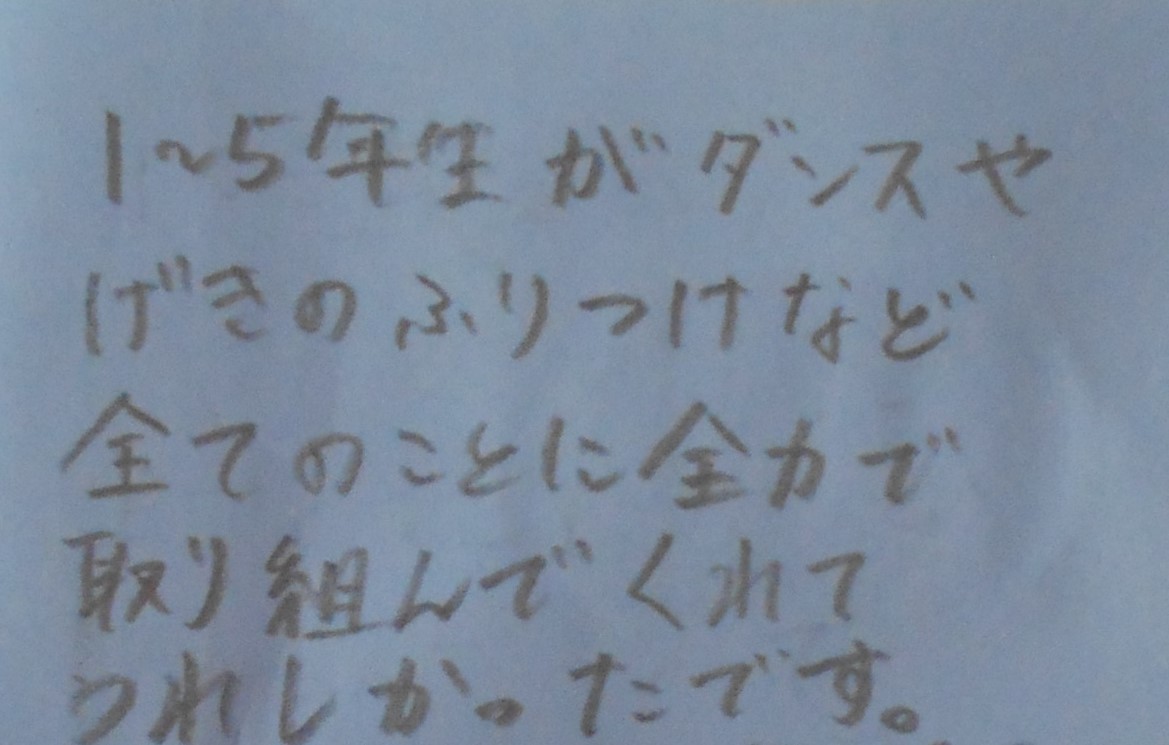 1~5年生がダンスや
げきのふりつけなど
全てのことに全力で
取り組んでくれて
うれしかったです。